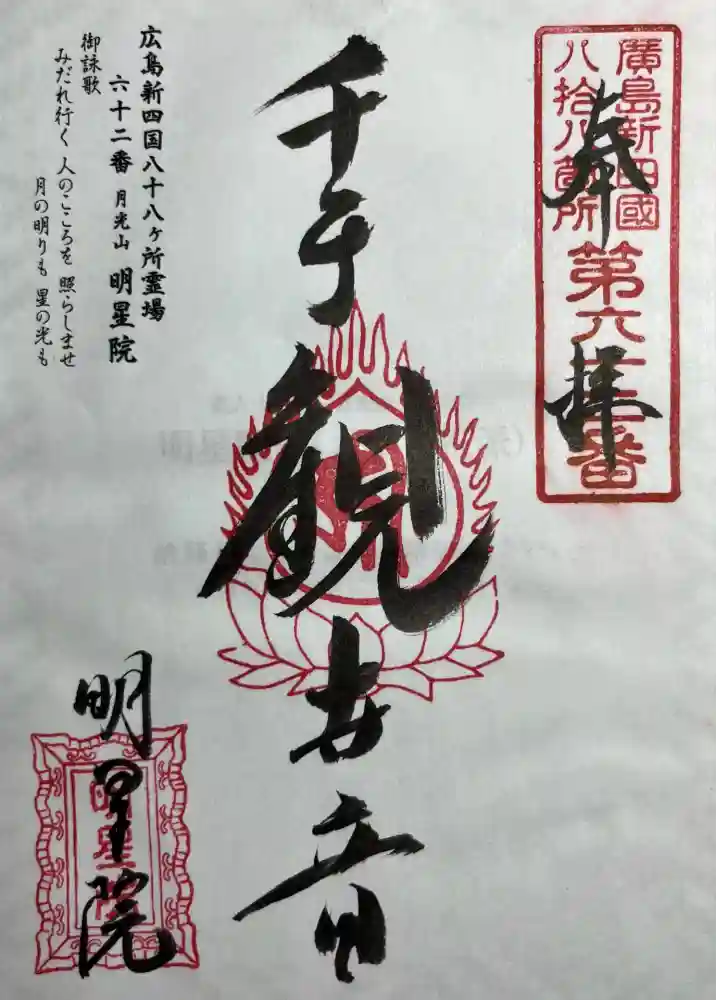 奉拝
廣島新四國
八拾八箇所
第六十二番
千手観世音
広島新四国八十八ヶ所霊場
六十二番 月光山 明星院
御詠歌
みだれ行く 人のこころを 照らしませ
月の明りも 星の光も
明星院
明星院